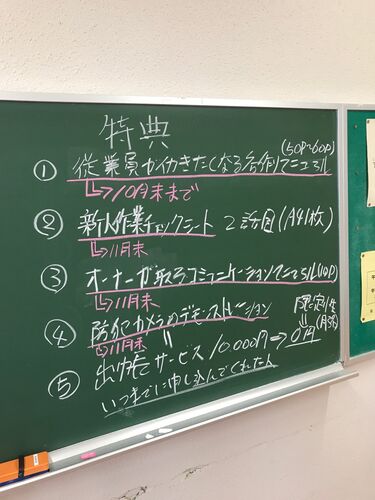 特典
① 従業員が働きたくなる名作りマニュアル (50P~60P)
↳10月末まで
② 新人作業チェックシート 2話目(A4 1枚)
↳11月末
③ オーナーが取るコミュニケーションマニュアル(10P)
↳11月末
④ 防犯カメラのデモンストレーション 限定1件
↳11月末 〃 (月額)
⑤ 出帳サービス 10,000円⇒0円
いつまでに申し込んでくれた人